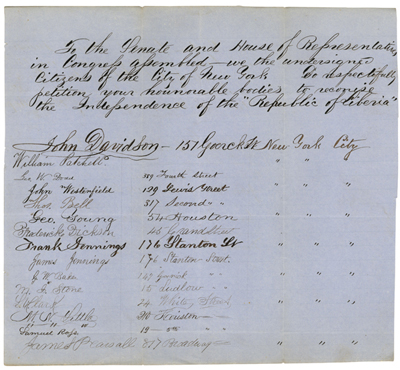 To the Senate and House of Representatives
in Congress assembled — we the undersigned
Citizens of the City of New York Do respectfully
petition your hounorable bodies to reconise
the Independence of the "Republic of Liberia"
John Davidson — 151 Goerck St New York City
William " " "
Geo W 389 Fourth Street " " "
John Westerfield 129 Lewis Street " " "
Thos Bell 317 Second " " " "
Geo. Young 54 Houston " " "
Frederick 45 " " "
Frank Jennings 176 Stanton St " " "
James Jennings 176 Stanton Street " " "
J W Baker 147 " " " "
M Stone 15 Ludlow " " " "
24 Street " " "
M Little 210 Houston " " " "
Samuel Ross 19 " " " "
James 817 Broadway " " "